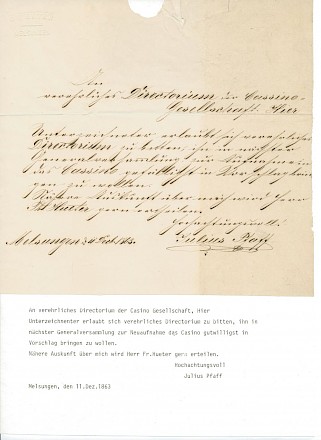 An
verehrliches Directorium der Cassino-
Gesellschaft. Hier
Unterzeichneter erlaubt sich verehrliches
Directorium zu bitten, ihn in nächster
Generalversammlung zur Aufnahme in
das Cassino gefälligst in Vorschlag brin-
gen zu wollen.
Nähere Auskunft über mich wird Herr
Fr. Hueter gern ertheilen.
Hochachtungsvoll!
Julius Pfaff
Melsungen
An verehrliches Directorium der Casino Gesellschaft, Hier
Unterzeichnenter erlaubt sich verehrliches Directorium zu bitten, ihn in
nächster Generalversammlung zur Neuaufnahme das Casino gutwilligst in
Vorschlag bringen zu wollen.
Nähere Auskunft über mich wird Herr Fr.Hueter gern erteilen.
Hochachtungsvoll
Julius Pfaff
Melsungen, den 11.Dez.1863